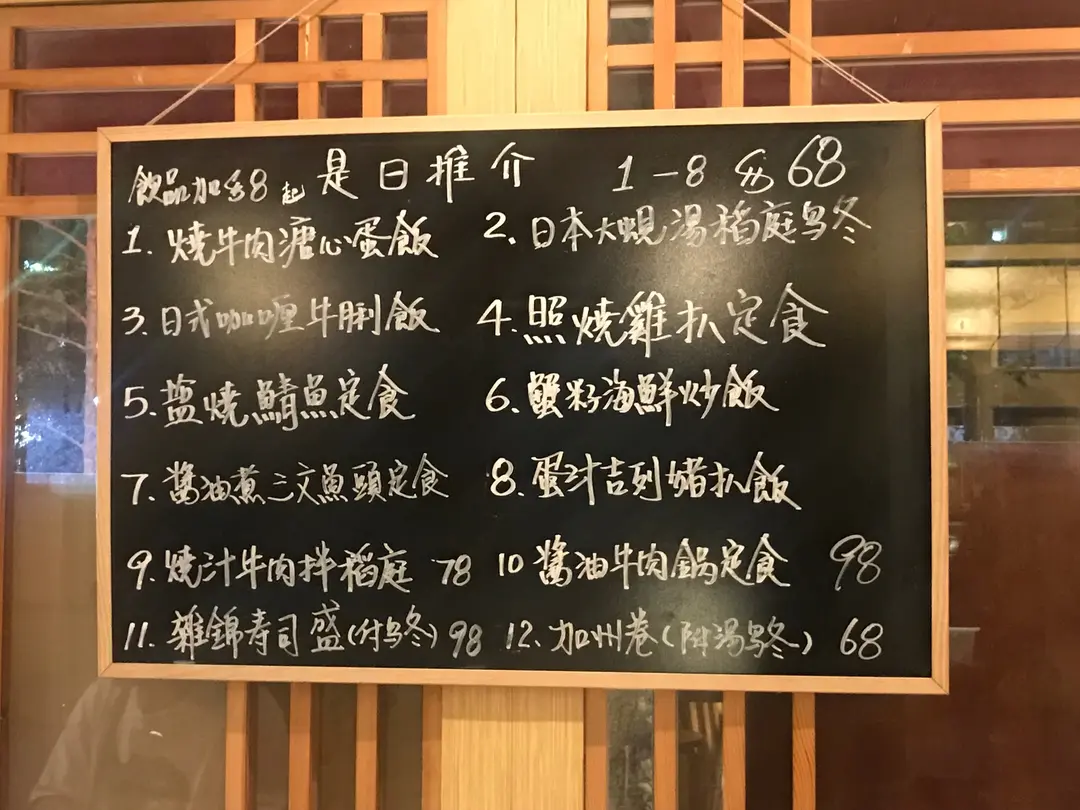 飲品加$8起 是日推介 1-8 $68
1. 燒牛肉溏心蛋飯 2. 日本大蜆湯稻庭烏冬
3. 日式咖喱牛脷飯 4. 照燒雞扒定食
5. 盐燒鯖魚定食 6. 蟹籽海鮮炒飯
7. 醬油煮三文魚頭定食 8. 蛋汁吉列豬扒飯
9. 燒汁牛肉拌稻庭 78 10 醬油牛肉鍋定食 98
11. 雜錦寿司盛(付烏冬) 98 12. 加州卷(附湯烏冬) 68